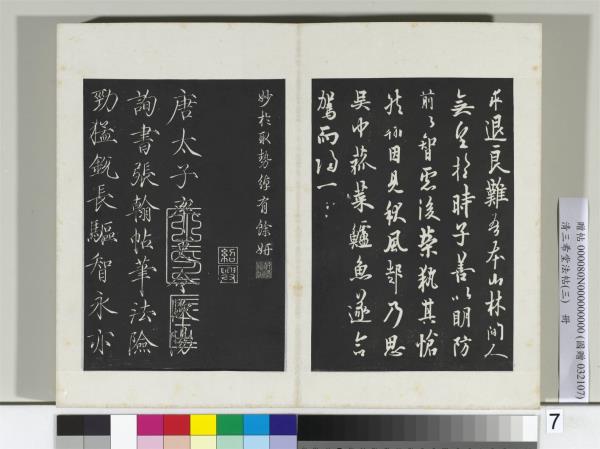 求退良難吾本山林間人
無望於時子善以明防
前以智慮後榮執其愴
然翰因見秋風起乃思
吳中菰菜鱸魚遂命
駕而歸
妙於取勢綽有餘妍
唐太子率更令歐陽
詢書張翰帖筆法險
勁猛銳長驅智永亦
紹興
贈帖 000080N000000000 (國贈 032107)
清三希堂法帖(三) 冊
7